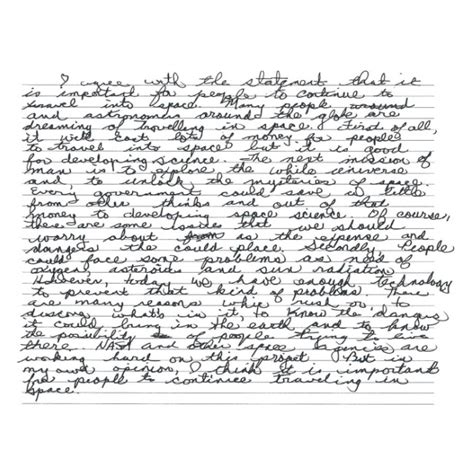 I agree with the statement that it
is important for people to continue to
travel into space. Many people around
and astronomers around the globe are
dreaming of travelling in space. First of all,
it will cost lots of money for people
to travel into space but it is good
for developing science. The next mission of
man is to explore the while universe
and to unlock the mysteries of space.
Every government could save a little
from other thinks and out of that
money to developing space science. Of course,
there are some issides that we should
worry about as the expense and
dangers the could place. Secondly People
could face some problems as need of
oxygen, asteroids and sun radiation.
However, today we have enough technology
to prevent that kind of problems. There
are many reasons whic rush on to
discove, what's in it, to know the dangers
it could bring in the earth and to know
the posibility of people trying to live
there. NASA and other space agencies are
working hard on this project. But in
my own opinion, I think it is important
for people to continue traveling in
space.